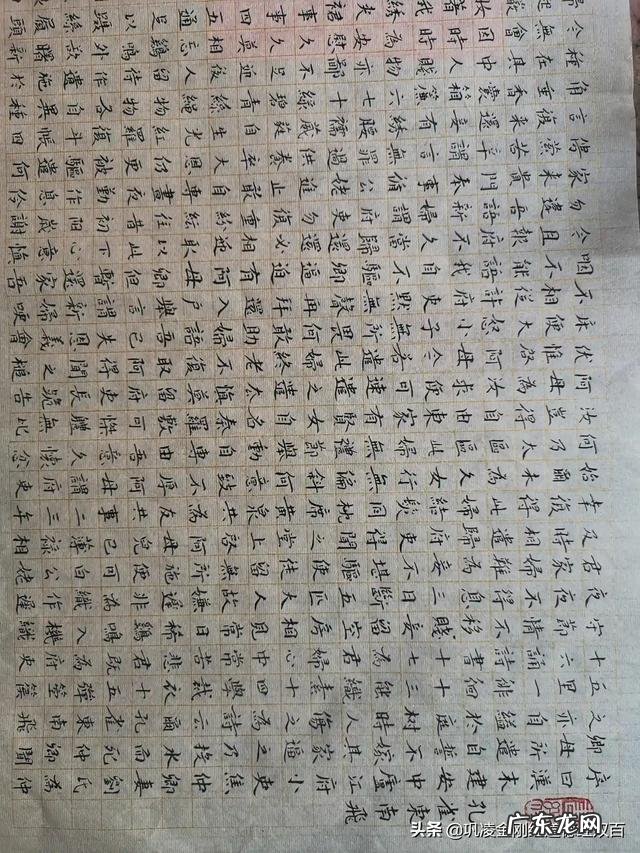 孔雀東南飛
序曰漢末建安中廬江府小吏焦仲卿妻劉氏為仲
卿母所遣自誓不嫁其家逼之乃投水而死仲卿聞
之亦自縊於庭樹時人傷之為詩云爾孔雀東南飛
五里一徘徊十三能織素十四學裁衣十五彈箜篌
十六誦詩書十七為君婦心中常苦悲君既為府吏
守節情不移賤妾留空房相見常日稀雞鳴入機織
夜夜不得息三日斷五匹大人故嫌遲非為織作遲
君家婦難為妾不堪驅使徒留無所施便可白公姥
及時相遣歸府吏得聞之堂上啟阿母兒已薄祿相
幸復得此婦結髮同枕席黃泉共為友共事二三年
始爾未為久女行無偏斜何意致不厚阿母謂府吏
何乃太區區此婦無禮節舉動自專由吾意久懷忿
汝豈得自由東家有賢女自名秦羅敷可憐體無比
阿母為汝求便可速遣之遣去慎莫留府吏長跪告
伏惟啟阿母今若遣此婦終老不復取阿得聞之槌
床便大怒小子無所畏何敢助婦語吾已失恩義會
不相從許府吏默無聲再拜還入戶舉言謂新婦哽
咽不能語我自不驅卿逼迫有阿母卿但暫還家吾
今且報府不久當歸還還必相迎取以此下心意慎
勿違吾語新婦謂府吏勿復重紛紜往昔初陽歲謝
家來貴門奉事循公姥進止敢自專晝夜勤作息伶
俜縈苦辛謂言無罪過供養卒大恩仍更被驅遣何
言復來還妾有繡腰襦葳蕤自生光紅羅複斗帳四
角垂香囊箱簾六七十綠碧青絲繩物物各自異種
種在其中人賤物亦鄙不足迎後人留待作遣施於
今無會因時時為安慰久莫相忘雞鳴外欲曙新
頭条 @巩凌金刚经道德经双百
广东龙网